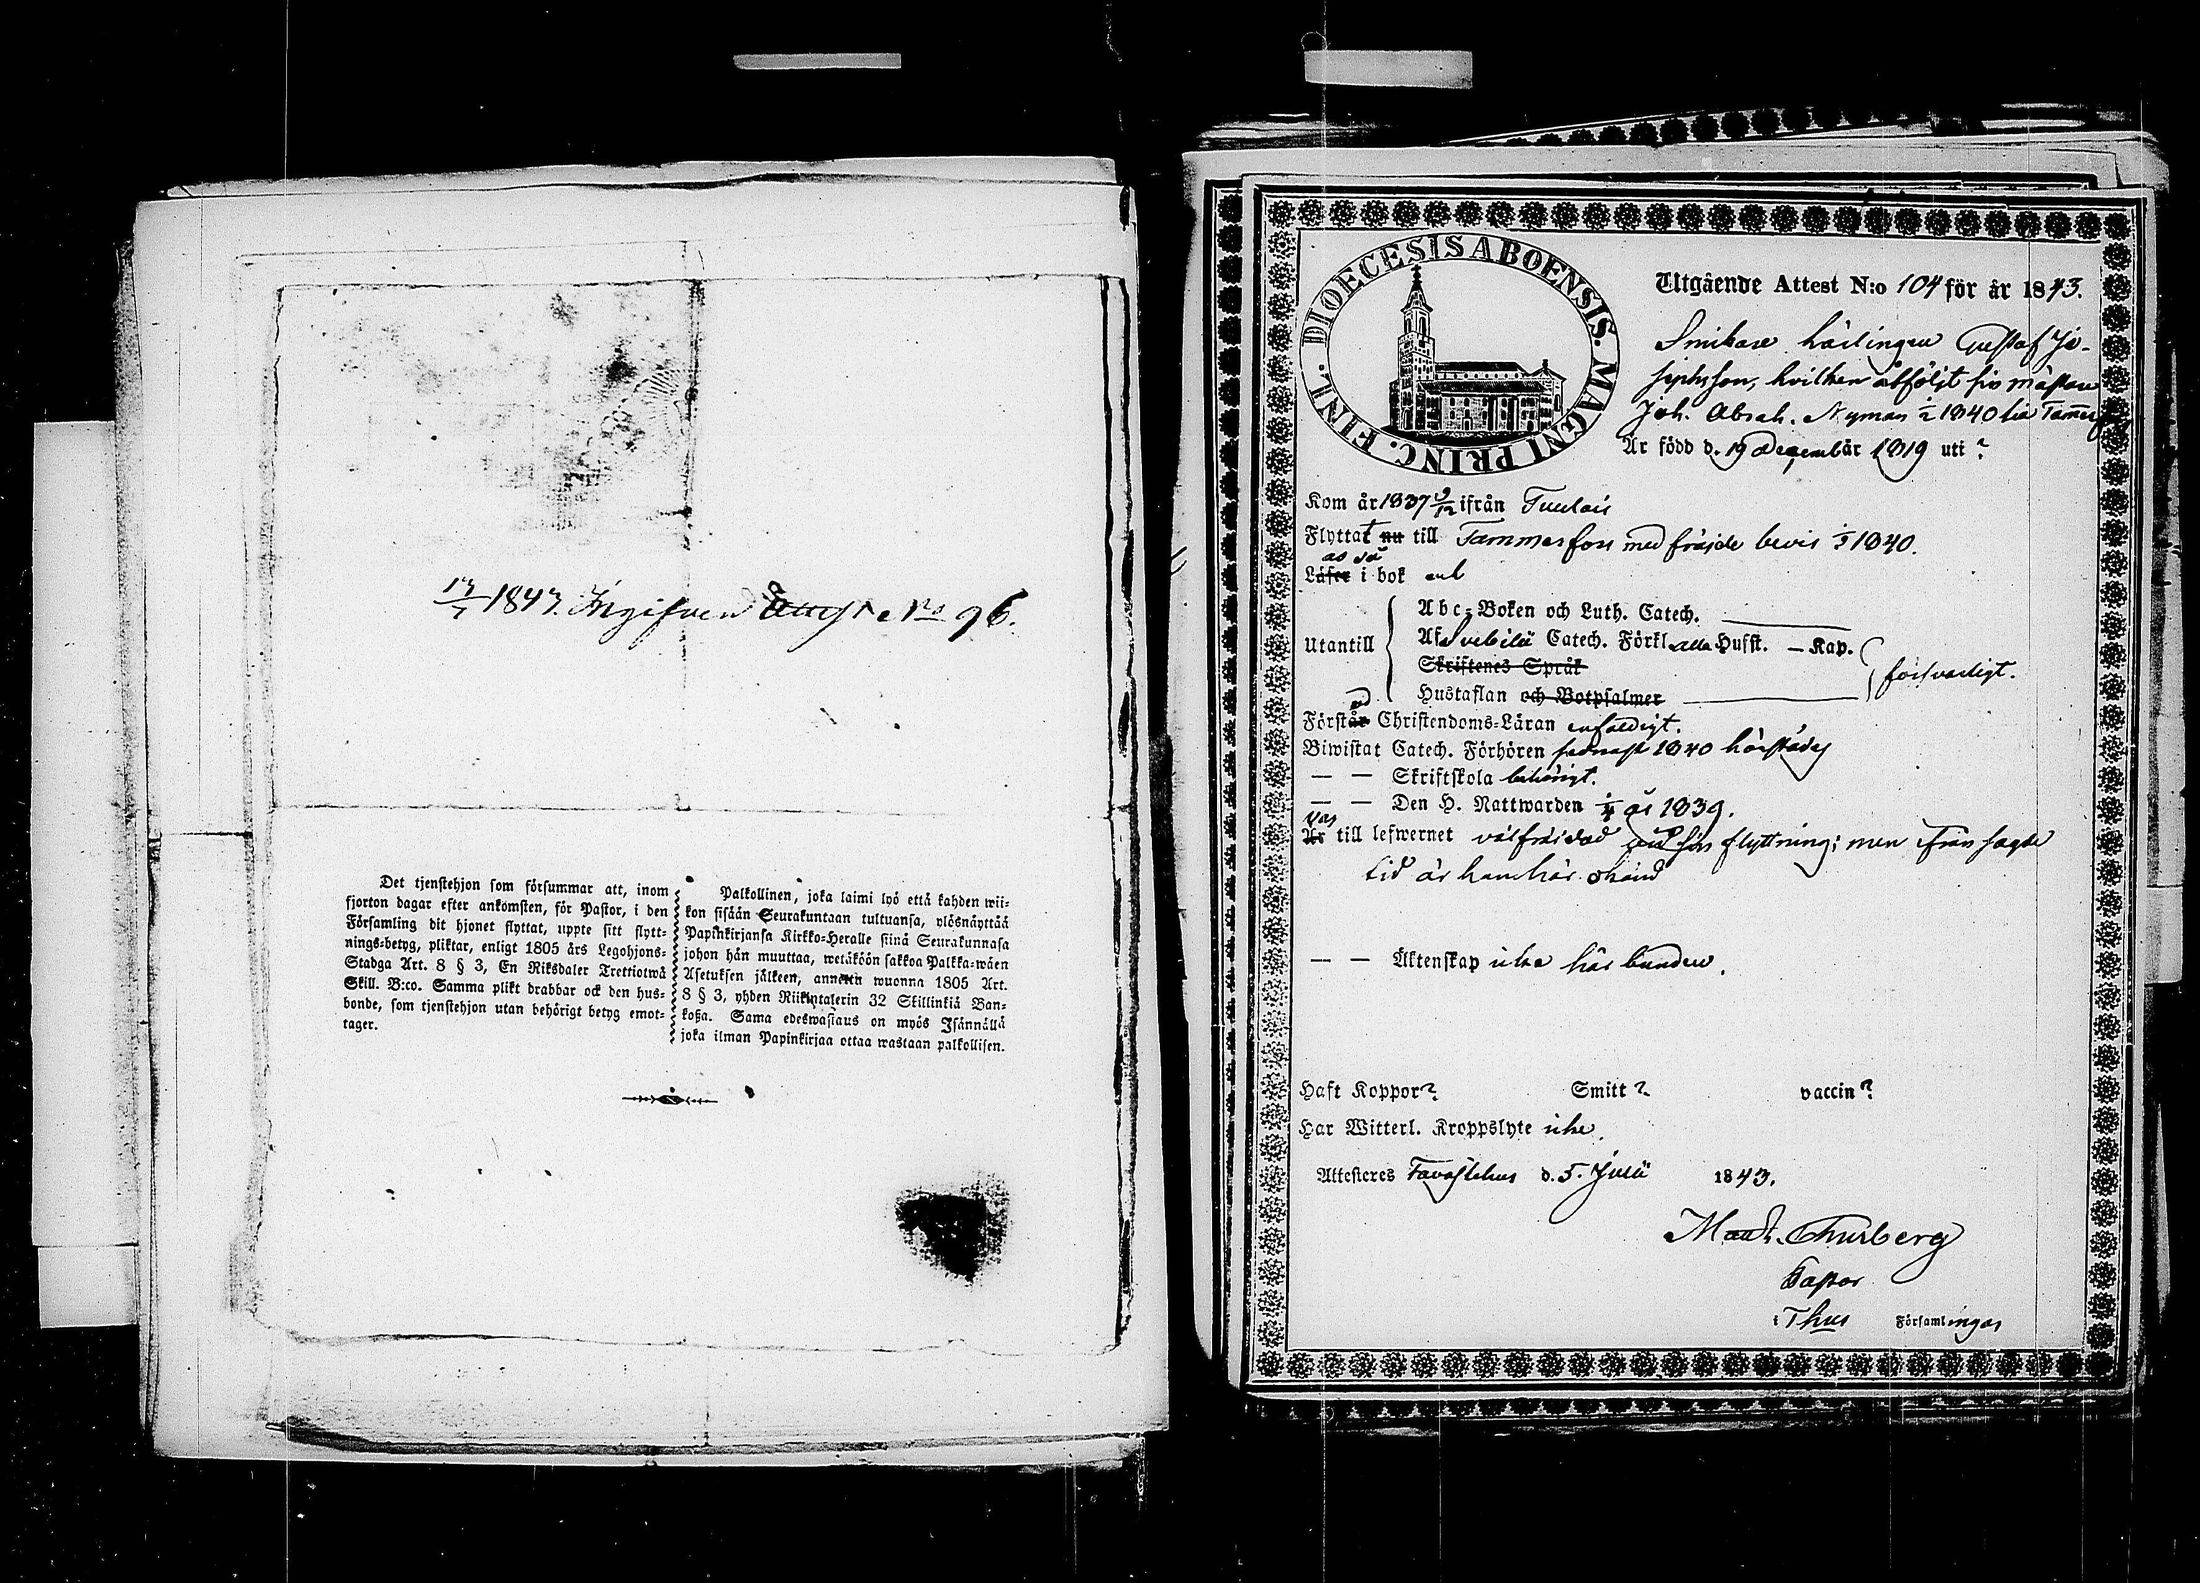 17/7 1843. Ingifven Attest No 96.
Det tjenstehjon som försummar att, inom
fjorton dagar efter ankomsten, för Pastor, i den
Församling dit hjonet flyttat, uppte sitt flytt-
nings-betyg, pliktar, enligt 1805 års Legohjons-
Stadga Art. 8 § 3, En Riksdaler Trettiotwå
Skill. B:co. Samma plikt drabbar ock den hus-
bonde, som tjenstehjon utan behörigt betyg emot-
tager.
Palkollinen, joka laimi lyö että kahden wii-
kon sisään Seurakuntaan tultuansa, ylösnäyttää
Papinkirjansa Kirkko-Heralle siinä Seurakunnasa
johon hän muuttaa, wetäköön sakkoa Palkka-wäen
Asetuksen jälkeen, annettu wuonna 1805 Art.
8 § 3, yhden Riikintalerin 32 Skillinkiä Ban-
koßa. Sama edeswastaus on myös Isännällä
joka ilman Papinkirjaa ottaa wastaan palkollisen.
DIOECESIS ABOENSIS. MAGNI PRINC. FINL.
Utgående Attest N:o 104 för år 1843.
Snickare lärlingen Gustaf Jo-
sephsson, hvilken åtföljt sin mästare
Joh. Abrah. Nyman 1840 till Tammerf
Är född d. 19 December år 1819 uti ?
Kom år 1837 9/12 ifrån Tuulois
Flyttat nu till Tammerfors med fräjde bevis 1840.
as då
Läser i bok enl
Utantill
Abc-Boken och Luth. Catech.
Af Svebilii Catech. Förkl. alla Hufst. — Kap.
Skriftenes Språk
Hustaflan och Botpsalmer
försvarligt.
Förstår Christendoms-Läran enfaldigt.
Biwistat Catech. Förhören sednast 1840 härstädes
— — Skriftskola behörigt.
— — Den H. Nattwarden år 1839.
var
Är till lefwernet välfräjdad vid sin flyttning; men ifrån sagde
tid är han här okänd
— — Äktenskap icke här bunden.
Haft Koppor? Smitt? vaccin?
Har Witterl. Kroppslyte icke.
Attesteres Tavastehus d. 5. Julii 1843.
Thurberg
Pastor
i Thus Församlingar